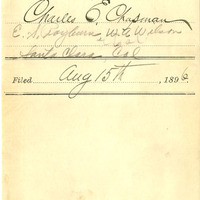 Charles E. Chapman
E. A. Rayburn W. T. Wilson
Santa Clara Cal
Filed Aug 15th, 1896.